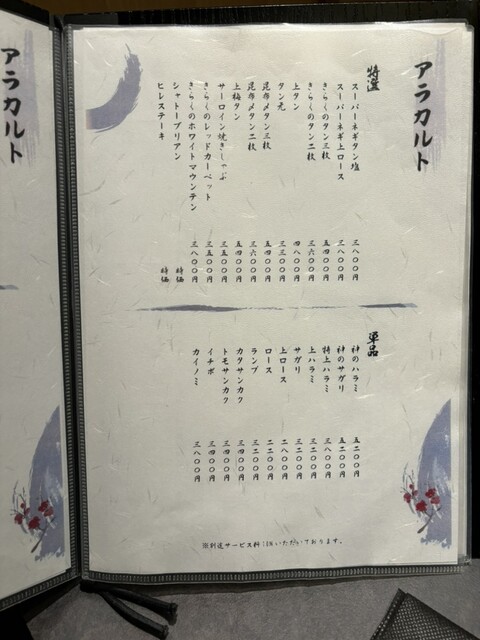 アラカルト
特選
スーパーネギタン塩 三八〇〇円
スーパーネギ上ロース 三八〇〇円
きらくのタン三枚 五四〇〇円
きらくのタン二枚 三六〇〇円
上タン 四八〇〇円
タン元 三三〇〇円
昆布〆タン三枚 五四〇〇円
昆布〆タン二枚 三六〇〇円
上梅タン 五四〇〇円
サーロイン焼きしゃぶ 三五〇〇円
きらくのレッドカーペット 三五〇〇円
きらくのホワイトマウンテン 三八〇〇円
シャトーブリアン 時価
ヒレステーキ 時価
単品
神のハラミ 五二〇〇円
神のサガリ 五二〇〇円
特上ハラミ 三八〇〇円
上ハラミ 三二〇〇円
サガリ 三二〇〇円
上ロース 二八〇〇円
ロース 二二〇〇円
ランプ 三二〇〇円
カタサンカク 三四〇〇円
トモサンカク 三四〇〇円
イチボ 三四〇〇円
カイノミ 三八〇〇円
※別途サービス料10%いただいております。
アラカルト